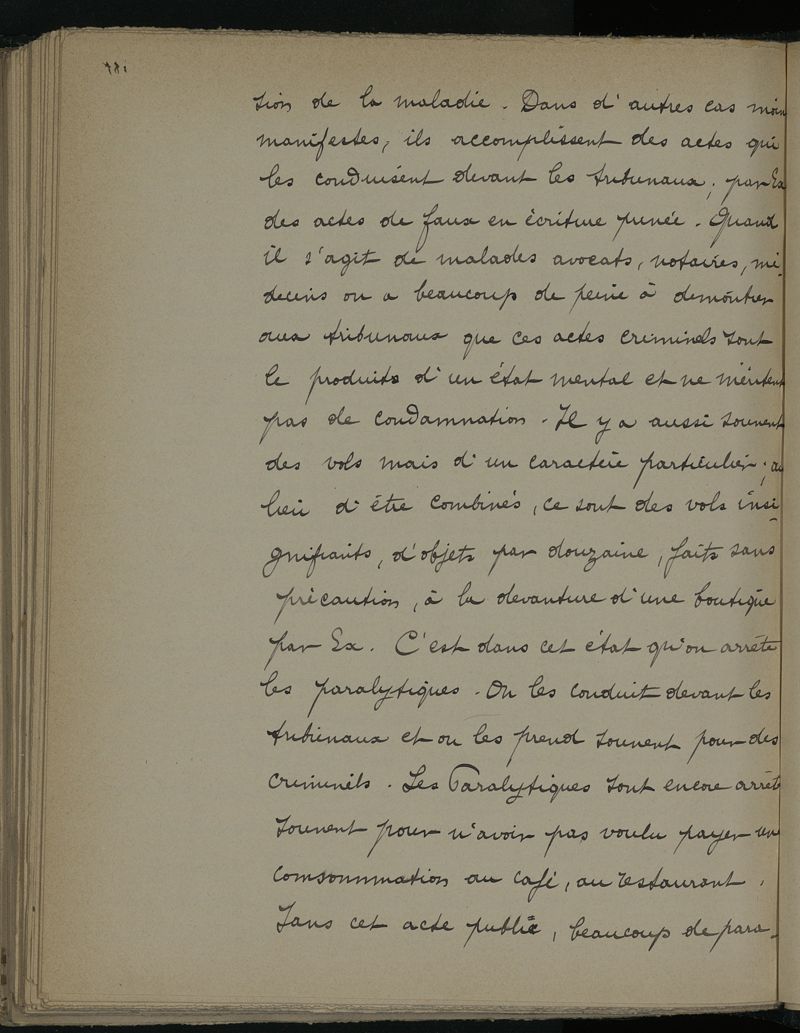 tion de la maladie. Dans d'autres cas moin
manifestes, ils accomplissent des actes qui
les conduisent devant les tribunaux; par Ex
des actes de faux en écriture privée. Quand
il s'agit de malades avocats, notaires, mé-
decins on a beaucoup de peine à démontrer
aux tribunaux que ces actes criminels sont
le produits d'un état mental et ne méritent
pas de condamnation. Il y a aussi souvent
des vols mais d'un caractère particulier; au
lieu d'être combinés, ce sont des vols insi-
gnifiants, d'objets par douzaine, faits sans
précaution, à la devanture d'une boutique
par Ex. C'est dans cet état qu'on arrête
les paralytiques. On les conduit devant les
tribunaux et on les prend souvent pour des
criminels. Les Paralytiques sont encore arrêtés
souvent pour n'avoir pas voulu payer une
comsommation au café, au restaurant.
Sans cet acte public, beaucoup de para-